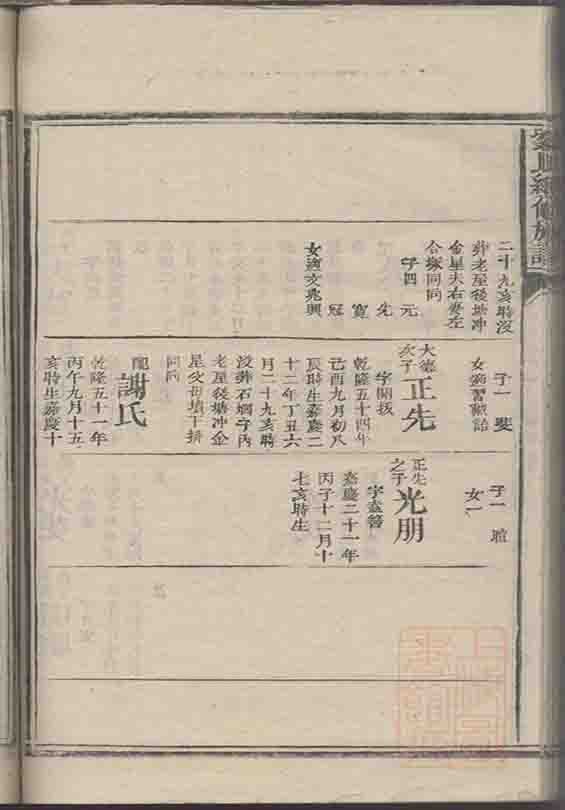 氏續修族譜
二十九亥時沒
葬老屋後塘冲
金星夫右妻左
合塚同向
子四 元
先
寬
冠
女適文兆興
子一 斐
女適習獻詔
大德次子 正先
字開拔
乾隆五十四年
己酉九月初八
辰時生嘉慶二
十二年丁丑六
月二十九亥時
沒葬石塥子內
老屋後塘冲金
星父母墳下排
同向
配 謝氏
乾隆五十一年
丙午九月十五
亥時生嘉慶十
子一 瑄
女一
正先之子 光朋
字盍簪
嘉慶二十一年
丙子十二月十
七亥時生